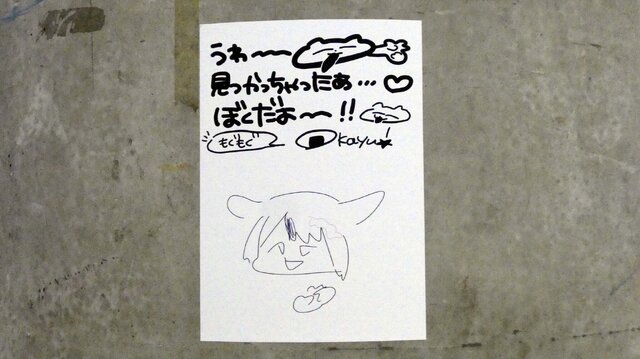 うわ〜〜
見つかっちゃったぁ…♡
ぼくだよ〜!!
もぐもぐ kayu